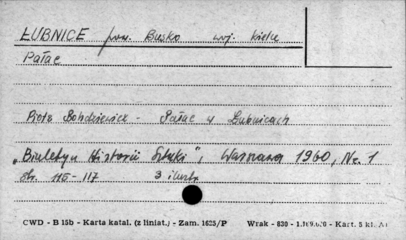 ŁUBNICE pow. Busko woj. kielce
Pałac
Piotr Bohdziewicz - Pałac w Łubnicach
„Biuletyn Historii Sztuki", Warszawa 1960, Nr. 1
str. 115-117 3 ilustr.
CWD - B 15b - Karta katal. (z liniat.) - Zam. 1625/P Wrak - 830 - Kart. 5 kl.